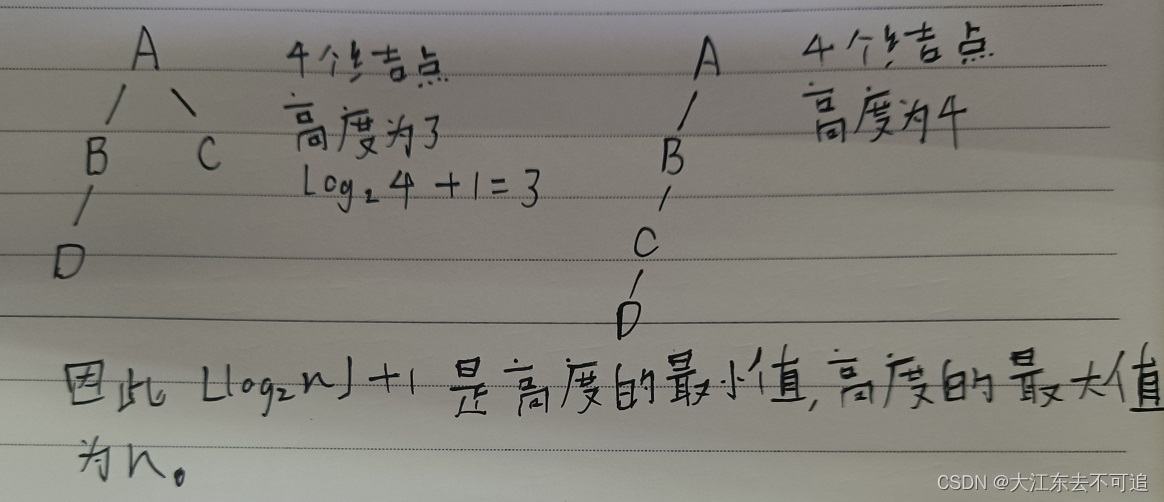 A
4个结点
高度为3
Log₂4+1=3
B
C
D
A
4个结点
高度为4
B
C
D
因此 ⌊log₂n⌋+1 是高度的最小值,高度的最大值
为n。
CSDN @大江东去不可追